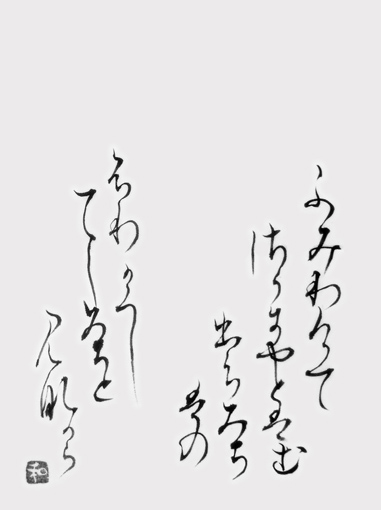 ふみわけて
さらにやとはむ
もみち
はの
ふりかくし
てしみちと
見那から
和